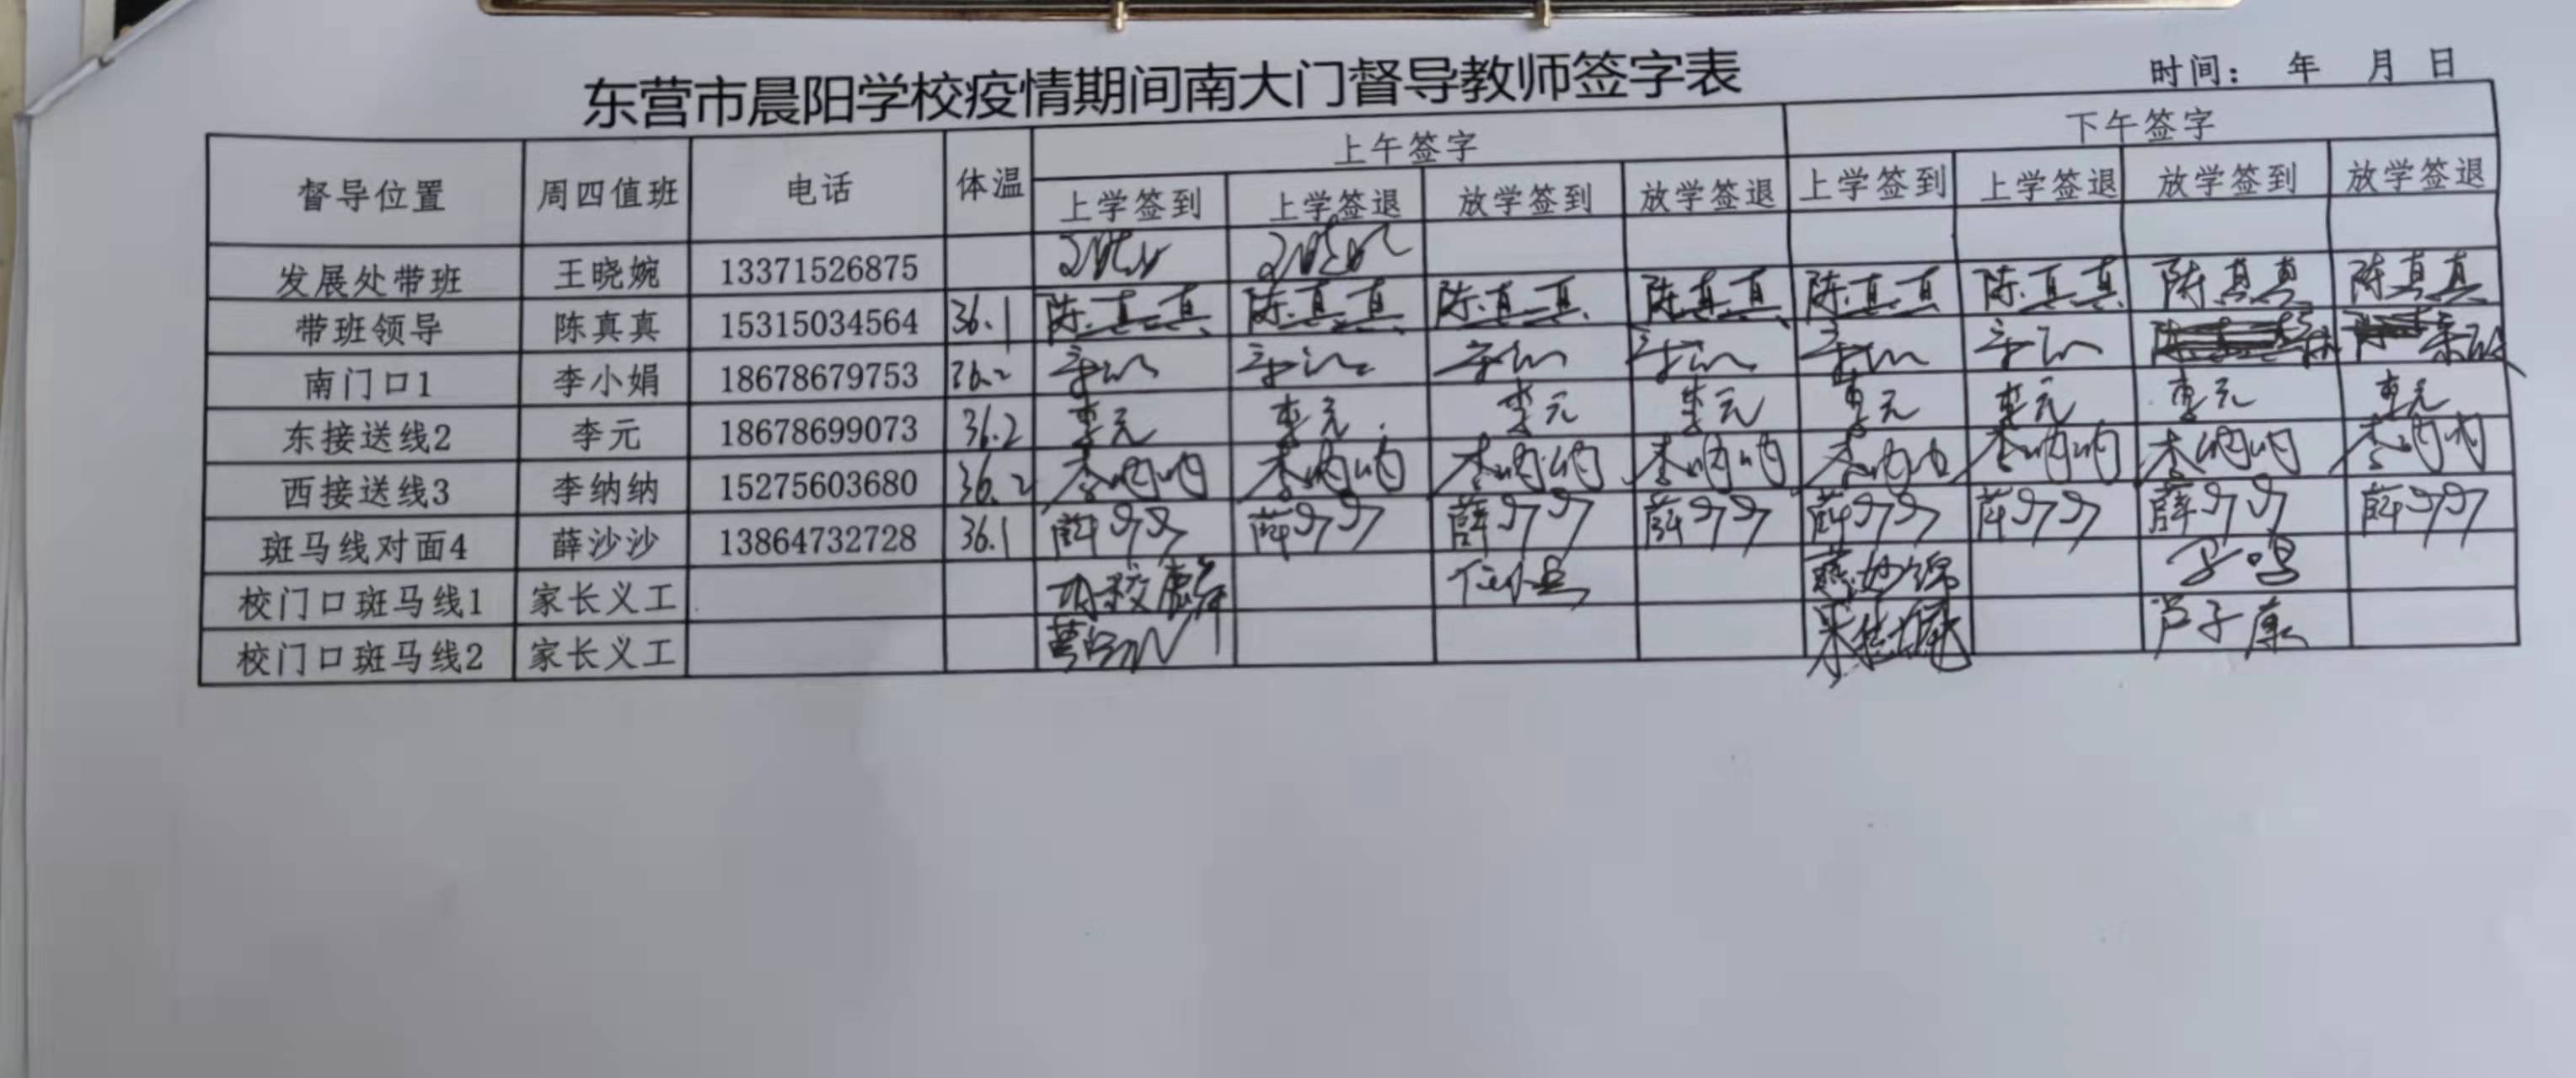 东营市晨阳学校疫情期间南大门督导教师签字表
时间： 年 月 日
督导位置 周四值班 电话 体温 上午签字 下午签字
上学签到 上学签退 放学签到 放学签退 上学签到 上学签退 放学签到 放学签退
发展处带班 王晓婉 13371526875
带班领导 陈真真 15315034564 36.1 陈真真 陈真真 陈真真 陈真真 陈真真 陈真真 陈真真 陈真真
南门口1 李小娟 18678679753 36.2
东接送线2 李元 18678699073 36.2 李元 李元 李元 李元 李元 李元 李元 李元
西接送线3 李纳纳 15275603680 36.2 李纳纳 李纳纳 李纳纳 李纳纳 李纳纳 李纳纳 李纳纳 李纳纳
斑马线对面4 薛沙沙 13864732728 36.1 薛沙沙 薛沙沙 薛沙沙 薛沙沙 薛沙沙 薛沙沙 薛沙沙 薛沙沙
校门口斑马线1 家长义工
校门口斑马线2 家长义工 芦子康